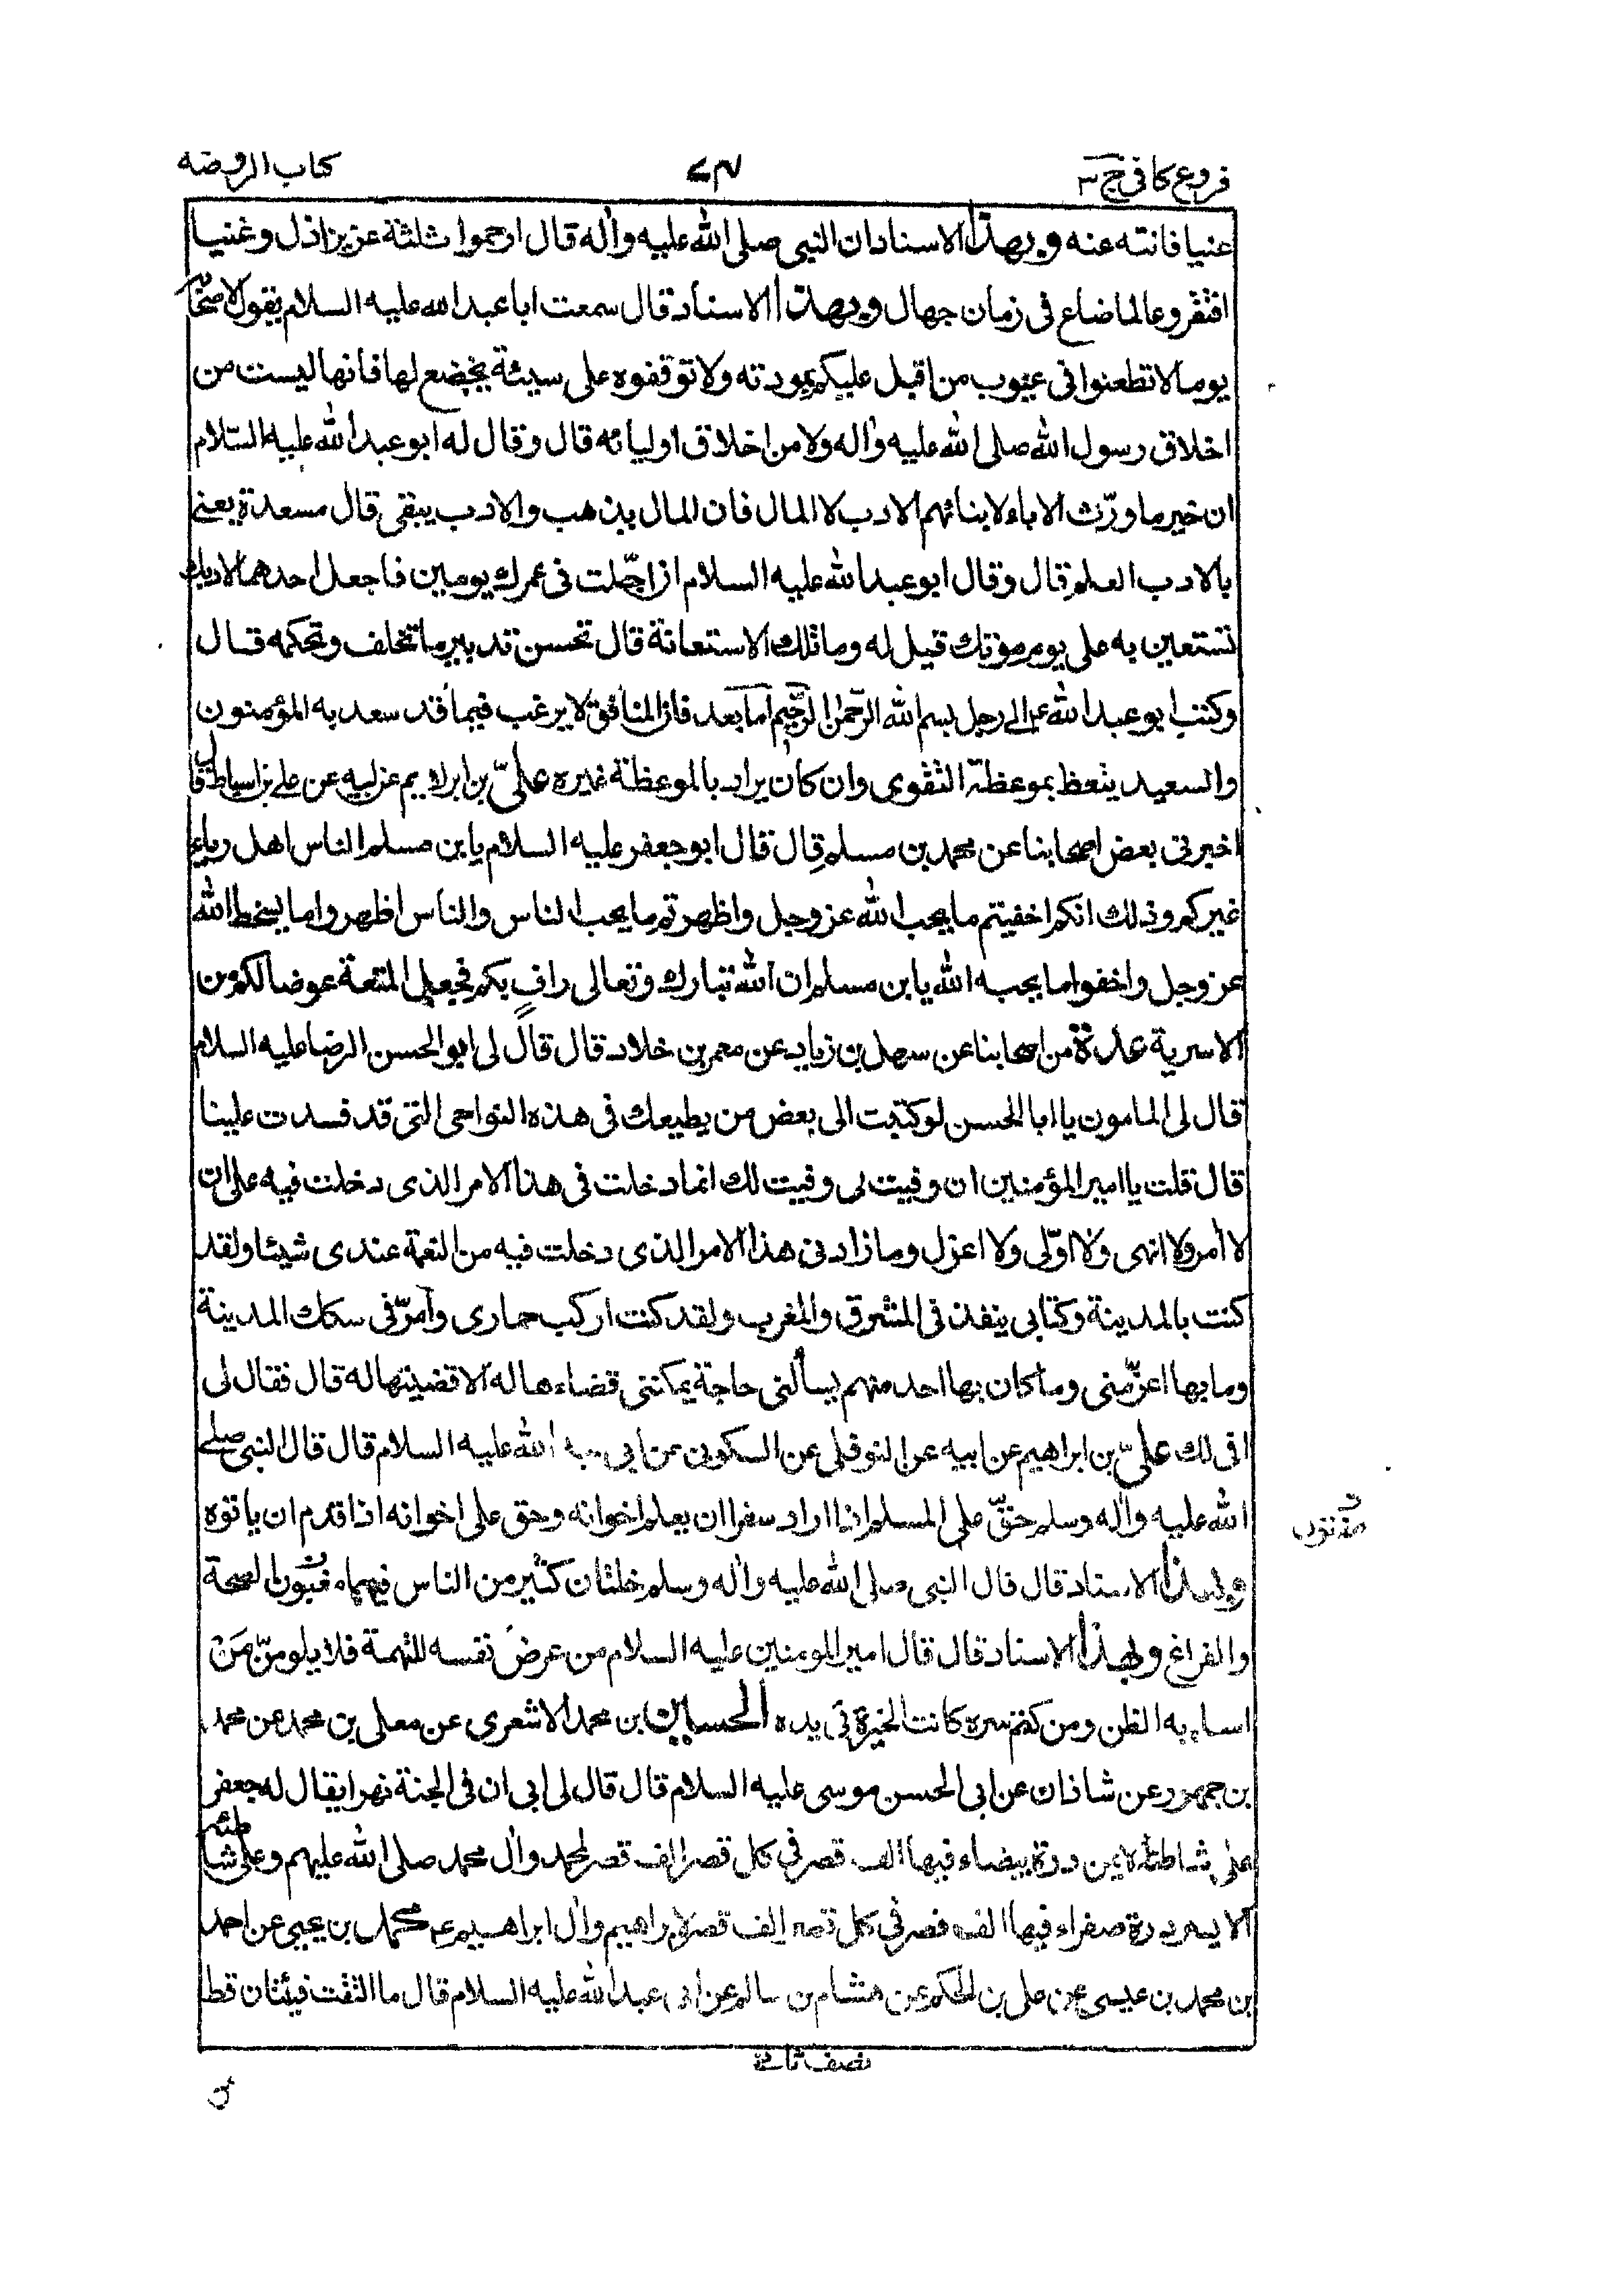 فروع كافي ج ٣
٧٣
كتاب الروضه
عنيا فانته عنه وبهذا الاسناد ان النبي صلى الله عليه واله قال ارحموا ثلثة عزيزا ذل وغنيا
افتقر وعالما ضاع في زمان جهال وبهذا الاسناد قال سمعت ابا عبد الله عليه السلام يقول لاصحابه
يوما لا تطعنوا في عيوب من اقبل عليكم بمودته ولا توقفوه على سيئة يخضع لها فانها ليست من
اخلاق رسول الله صلى الله عليه واله ولا من اخلاق اوليائه قال وقال له ابو عبد الله عليه السّلام
ان خير ما ورّث الاباء لابنائهم الادب لا المال فان المال يذهب والادب يبقى قال مسعدة يعني
بالادب العلم قال وقال ابو عبد الله عليه السلام ان اجّلت في عمرك يومين فاجعل احدهما لادبك
تستعين به على يوم موتك قيل له وما تلك الاستعانة قال تحسن تدبير ما تخلف وتحكمه قال
وكتب ابو عبد الله ع الى رجل بسم الله الرّحمن الرّحيم اما بعد فان المنافق لا يرغب فيما قد سعد به المؤمنون
والسعيد يتعظ بموعظة التقوى وان كان يراد بالموعظة غيره علىّ بن ابراهيم عن ابيه عن على بن اسباط قال
اخبرني بعض اصحابنا عن محمد بن مسلم قال قال ابو جعفر عليه السلام يا بن مسلم الناس اهل رياء
غيركم وذلك انكم اخفيتم ما يحب الله عز وجل واظهرتم ما يحب الناس والناس اظهروا ما يسخط الله
عز وجل واخفوا ما يحبه الله يا بن مسلم ان الله تبارك وتعالى راف بكم فجعل المتعة عوضا لكم من
الاسرية عدة من اصحابنا عن سهل بن زياد عن معمر بن خلاد قال قال لي ابو الحسن الرضا عليه السلام
قال لي المامون يا ابا الحسن لو كتبت الى بعض من يطيعك في هذه النواحي التي قد فسدت علينا
قال قلت يا امير المؤمنين ان وفيت لي وفيت لك انما دخلت في هذا الامر الذي دخلت فيه على ان
لا امر ولا انهى ولا اولّى ولا اعزل وما زادني هذا الامر الذي دخلت فيه من النعمة عندي شيئا ولقد
كنت بالمدينة وكتابي ينفذ في المشرق والمغرب ولقد كنت اركب حماري وآمرّ في سكك المدينة
وما بها اعزّ منى وما كان بها احد منهم يسألني حاجة يمكنني قضاءها له الا قضيتها له قال فقال لي
افي لك علىّ بن ابراهيم عن ابيه عن النوفلي عن السكوني عن ابي عبد الله عليه السلام قال قال النبي صلى
الله عليه واله وسلم حقّ على المسلم اذا اراد سفرا ان يعلم اخوانه وحق على اخوانه اذا قدم ان ياتوه
وبهذا الاسناد قال قال النبي صلى الله عليه واله وسلم خلتان كثير من الناس فيهما مغبون الصحة
والفراغ وبهذا الاسناد قال قال امير المومنين عليه السلام من عرض نفسه للتهمة فلا يلومنّ من
اساء به الظن ومن كتم سره كانت الخيرة في يده الحسين بن محمد الاشعري عن معلى بن محمد عن محمد
بن جمهور عن شاذان عن ابي الحسن موسى عليه السلام قال قال لي ابي ان في الجنة نهرا يقال له جعفر
على شاطئه الايمن درة بيضاء فيها الف قصر في كل قصر الف قصر لمحمد وال محمد صلى الله عليهم وعلى شاطئه
الايسر درة صفراء فيها الف قصر في كل قصر الف قصر لابراهيم وال ابراهيم ع محمد بن يحيى عن احمد
بن محمد بن عيسى عن على بن الحكم عن هشام بن سالم عن ابي عبد الله عليه السلام قال ما التقت فيئتان قط
نصف ثاني